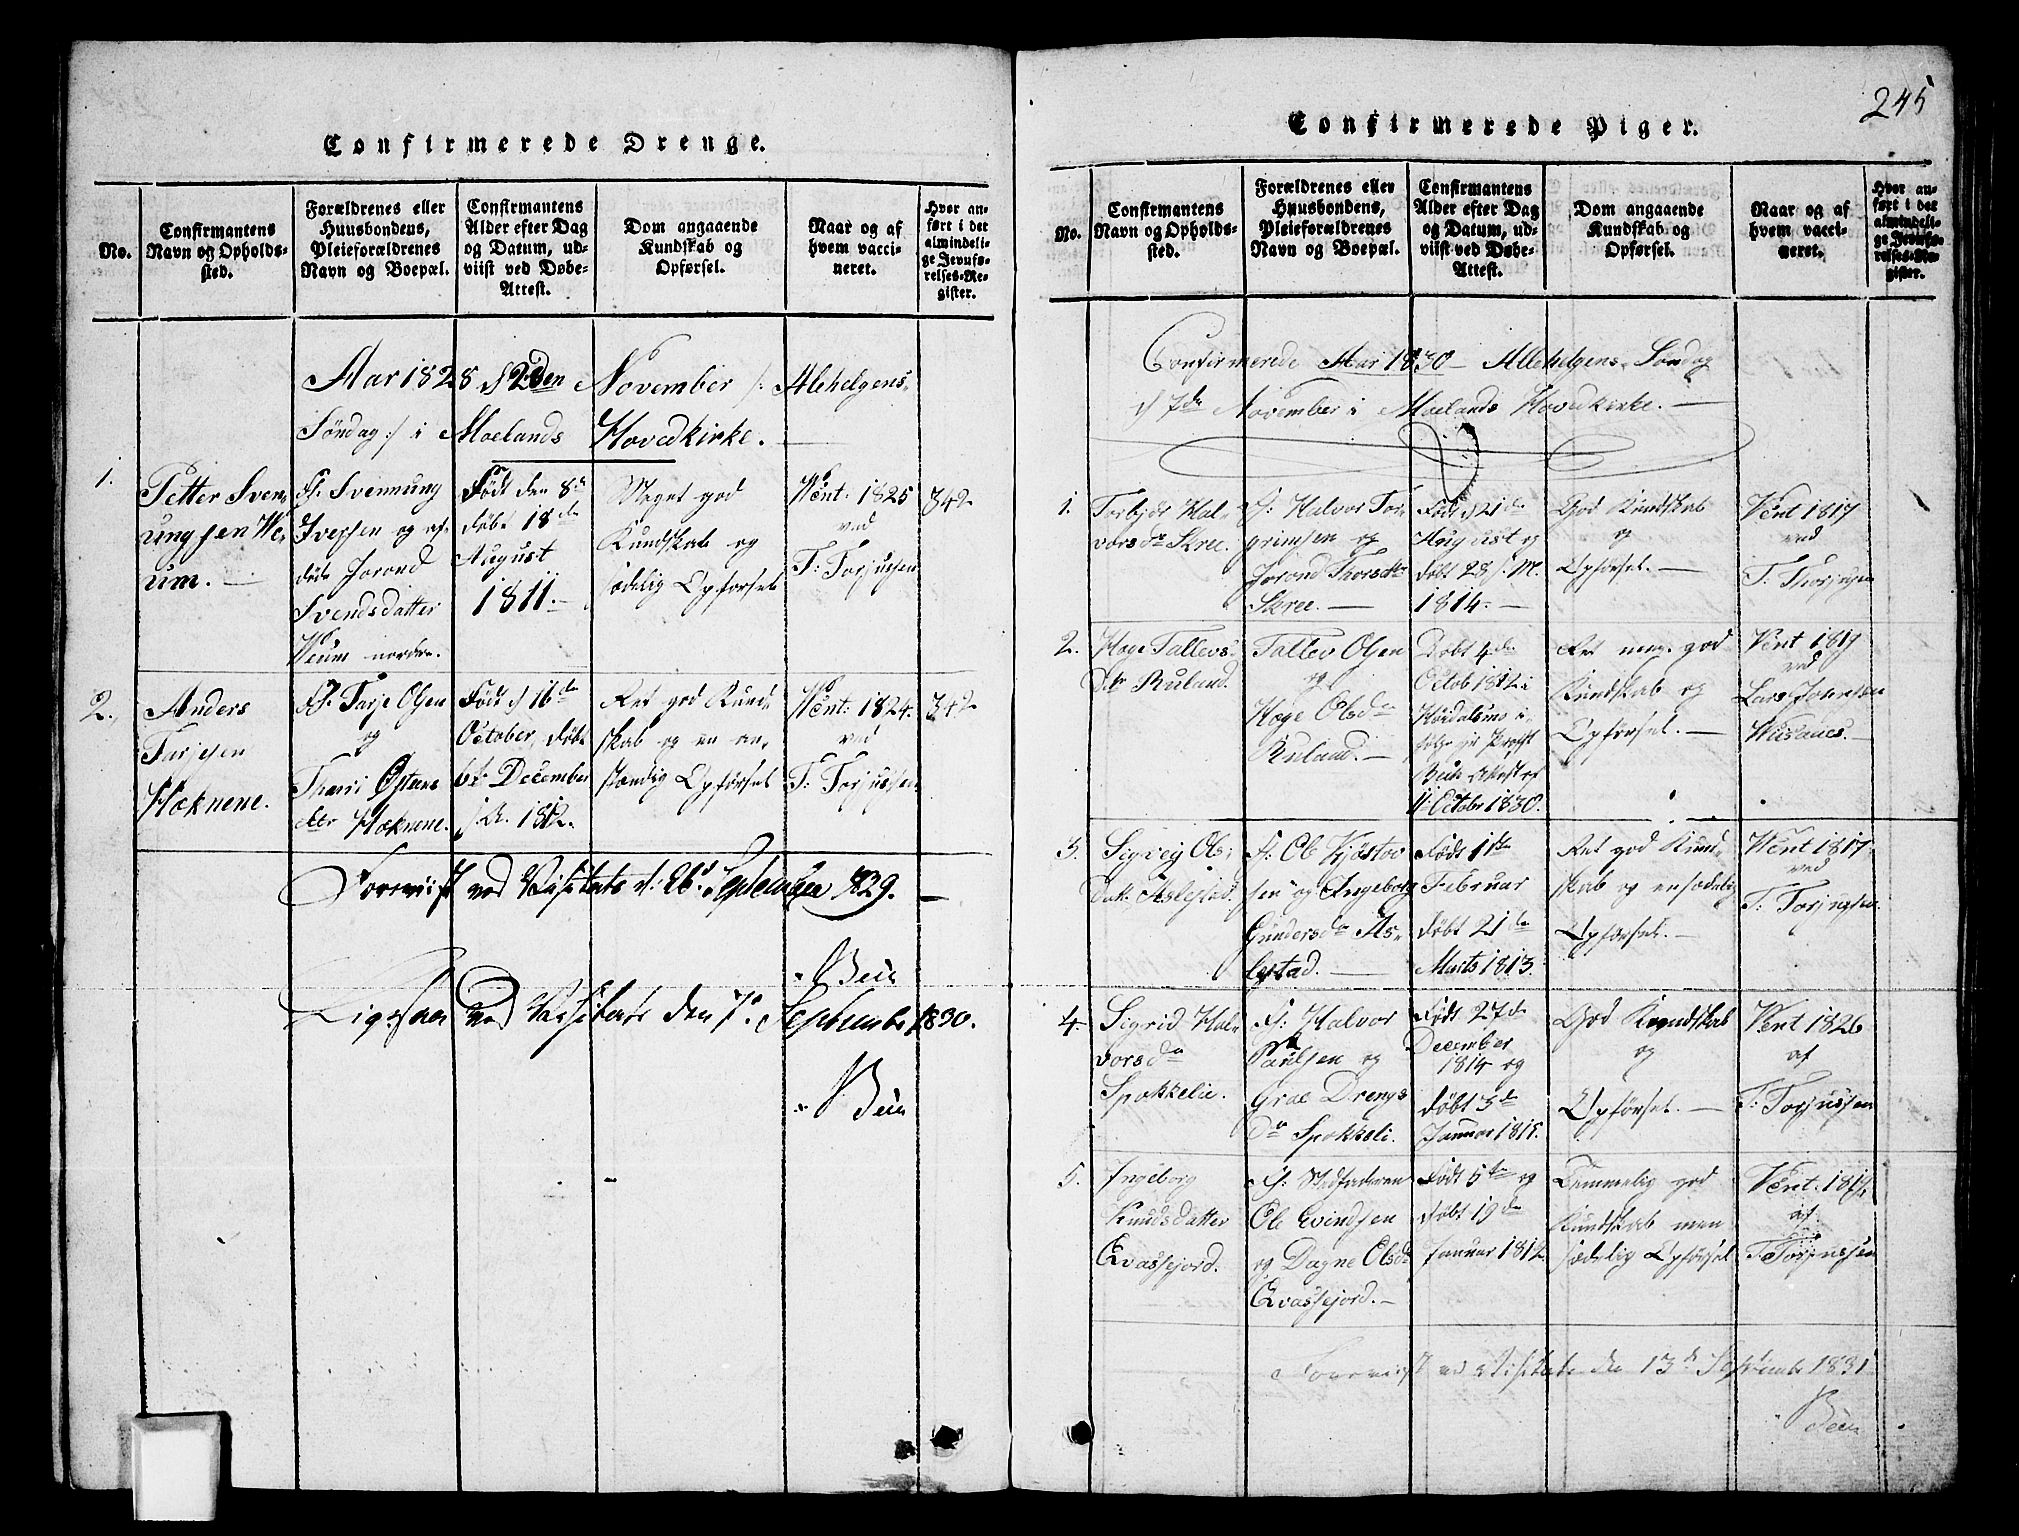 Confirmerede Drenge.
No.
Confirmantens
Navn og Opholds-
sted.
Forældrenes eller
Huusbondens,
Pleieforældrenes
Navn og Boepæl.
Confirmantens
Alder efter Dag
og Datum, ud-
viist ved Døbe-
Attest.
Dom angaaende
Kundskab og
Opførsel.
Naar og af
hvem vacci-
neret.
Hvor an-
ført i det
almindeli-
ge Jevnfø-
relses-Re-
gister.
Aar 1828 November /: Alehelgens-
Søndag :/ i Moelands Hovedkirke.
1.
Petter Sven-
ungsen We-
um. —
F. Svennung
Iversen og af-
døde Jorond
Svendsdatter
Weum nordre.
Født den 8de
døbt 18de
August
1811. —
Meget god
Kundskab og
sædelig Opførsel
Vent: 1825
ved
T: Torjussen
342
2.
Anders
Tarjesen
Hæknene.
F. Tarje Olsen
og
Thari Østens
dtr Hæknene.
Født d 16de
October, døbt
6t December
s. A. 1812.
Ret god Kund-
skab og en an-
stændig Opførsel
Vent: 1824.
ved
T: Torjussen
342
Foreviist ved Visitats d: September 1829. —
Bein
Ligesaa ved Visitats den 7de September 1830.
Bein
245
Confirmerede Piger.
No.
Confirmantens
Navn og Opholds-
sted.
Forældrenes eller
Huusbondens,
Pleieforældrenes
Navn og Boepæl.
Confirmantens
Alder efter Dag
og Datum, ud-
viist ved Døbe-
Attest.
Dom angaaende
Kundskab og
Opførsel.
Naar og af
hvem vacci-
neret.
Hvor an-
ført i det
almindeli-
ge Jevnfø-
relses-Re-
gister.
Confirmerede Aar 1830 — Allehelgens-Søndag
d 7de November i Moelands Hovedkirke. —
1.
Torbjør Hal-
vorsdr Skree.
F: Halvor Tor-
grimsen og
Jorond Thorsdtr
Skree. —
Født d 21de
August og
døbt 28 s. M.
1814. —
God Kundskab
og
Opførsel. —
Vent 1817
ved
T: Thorjusen
2.
Hæge Tallevs-
dtr Ruland.
Tallev Olsen
og
Hæge Olsdr
Ruland. —
Døbt 4de
Octob 1812 i
følge
Attest af
11 Octobr 1830.
Ret god
Kundskab og
Opførsel. —
Vent 1817
ved
Lars Johnsen
3.
Sigvej Ols-
dat: Aslestad.
F: Ol Kjøstov
sen og Ingeborg
Gundersdr As-
lestad. —
Født 11te
Februar
døbt 21de
Marts 1813.
Ret god Kund-
skab og en sædelig
Opførsel. —
Vent 1817
ved
T: Torjusen.
4.
Sigrid Hal-
vorsdr
Spokkelie.
F: Halvor
Paulsen og
Groe Drengs
dr Spokkeli.
Født 27de
December
1814 og
døbt 3de
Januar 1815.
God Kundskab
og
Opførsel. —
Vent 1826
af
T: Torjussen
5.
Ingeborg
Knudsdatter
Qvassejord.
F: Stedfaderen
Ole Evindsen
og Dagne Olsdr
Qvassejord. —
Født 5te og
døbt 19de
Januar 1812
Temmelig god
Kundskab men
sædelig Opførsel
Vent. 1812
af
T: Torjussen
Foreviist ved Visitats den 13de September 1831
Bein